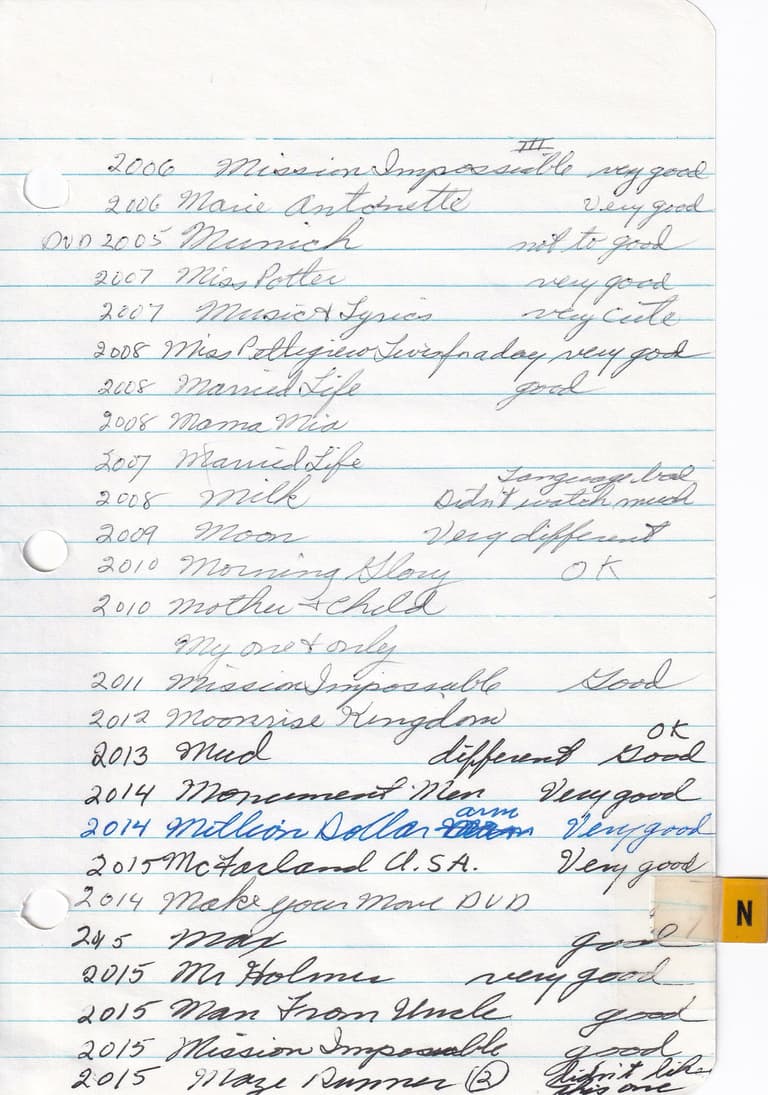 III
2006 Mission Impossible very good
2006 Marie Antonette Very good
DVD 2005 Munich not to good
2007 Miss Potter very good
2007 Music & Lyrics very cute
2008 Miss Pettigrew Livesforaday very good
2008 Married Life good
2008 Mama Mia
2007 Married Life
Language bad
2008 Milk Didn't watch much
2009 Moon Very different
2010 Morning Glory OK
2010 Mother + Child
My one & only
2011 Mission Impossible Good
2012 Moonrise Kingdom
OK
2013 Mud different Good
2014 Monument Men Very good
arm
2014 Million Dollar Very good
2015 McFarland U.S.A. Very good
2014 Make your Move DVD
N
2015 Max good
2015 Mr Holmes very good
2015 Man From Uncle good
2015 Mission Impossible good
2015 Maze Runner (2) didn't like
this one